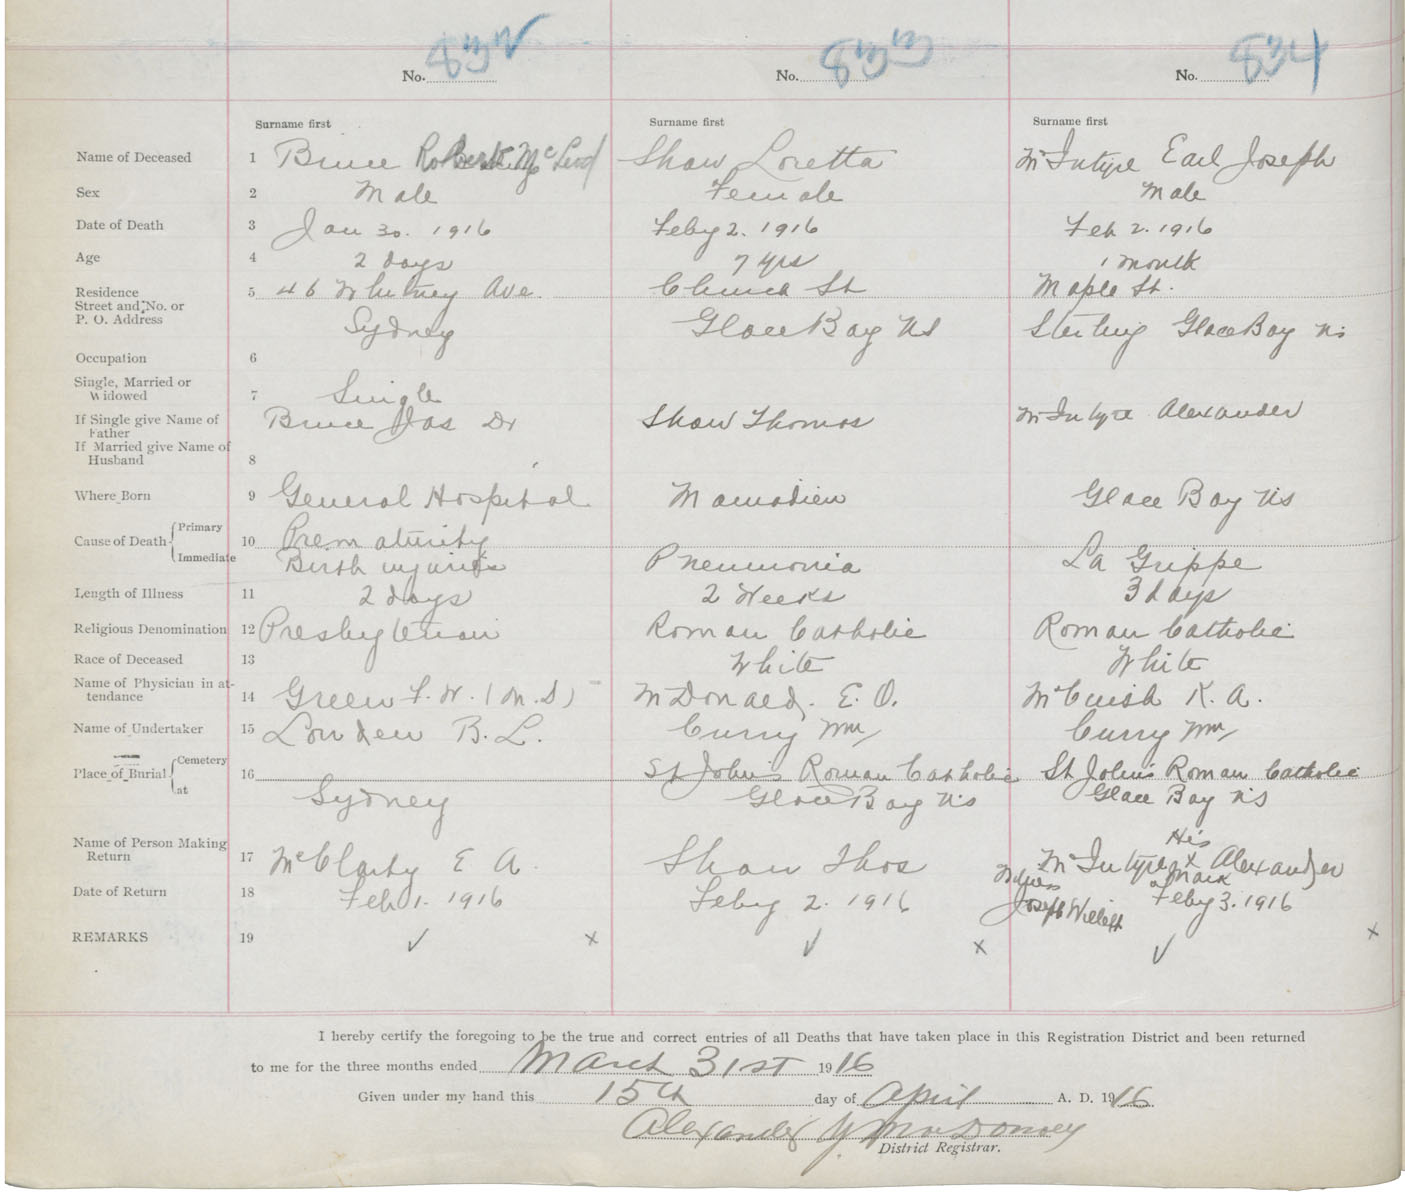 No. 832
No. 833
No. 834
Surname first
Surname first
Surname first
Name of Deceased 1 Bruce Robert McLeod Shaw Loretta McIntyre Earl Joseph
Sex 2 Male Female Male
Date of Death 3 Jan 30. 1916 Feby 2. 1916 Feb 2. 1916
Age 4 2 days 7 yrs 1 month
Residence 5 46 Whitney Ave. Church St Maple St.
Street and No. or
P. O. Address Sydney Glace Bay NS Sterling Glace Bay NS
Occupation 6
Single, Married or
Widowed 7 Single
If Single give Name of Bruce Jas Dr Shaw Thomas McIntyre Alexander
Father
If Married give Name of
Husband 8
Where Born 9 General Hospital Glace Bay NS
Cause of Death Primary 10 Prematurity
Immediate Birth injuries Pneumonia La Grippe
Length of Illness 11 2 days 2 Weeks 3 days
Religious Denomination 12 Presbyterian Roman Catholic Roman Catholic
Race of Deceased 13 White White
Name of Physician in at-
tendance 14 Green F. W. (M.D) McDonald, E. O. McCuish K. A.
Name of Undertaker 15 Louden B. L. Curry Wm Curry Wm
Place of Burial Cemetery 16 St John's Roman Catholic St John's Roman Catholic
at Sydney Glace Bay NS Glace Bay NS
Name of Person Making His
Return 17 McClarty E A. Shaw Thos McIntyre x Alexander
Witness mark
Date of Return 18 Feb 1. 1916 Feby 2. 1916 Feby 3. 1916
Joseph
REMARKS 19 ✓ x ✓ x ✓ x
I hereby certify the foregoing to be the true and correct entries of all Deaths that have taken place in this Registration District and been returned
to me for the three months ended March 31st 1916
Given under my hand this 15th day of April A. D. 1916.
Alexander
District Registrar.